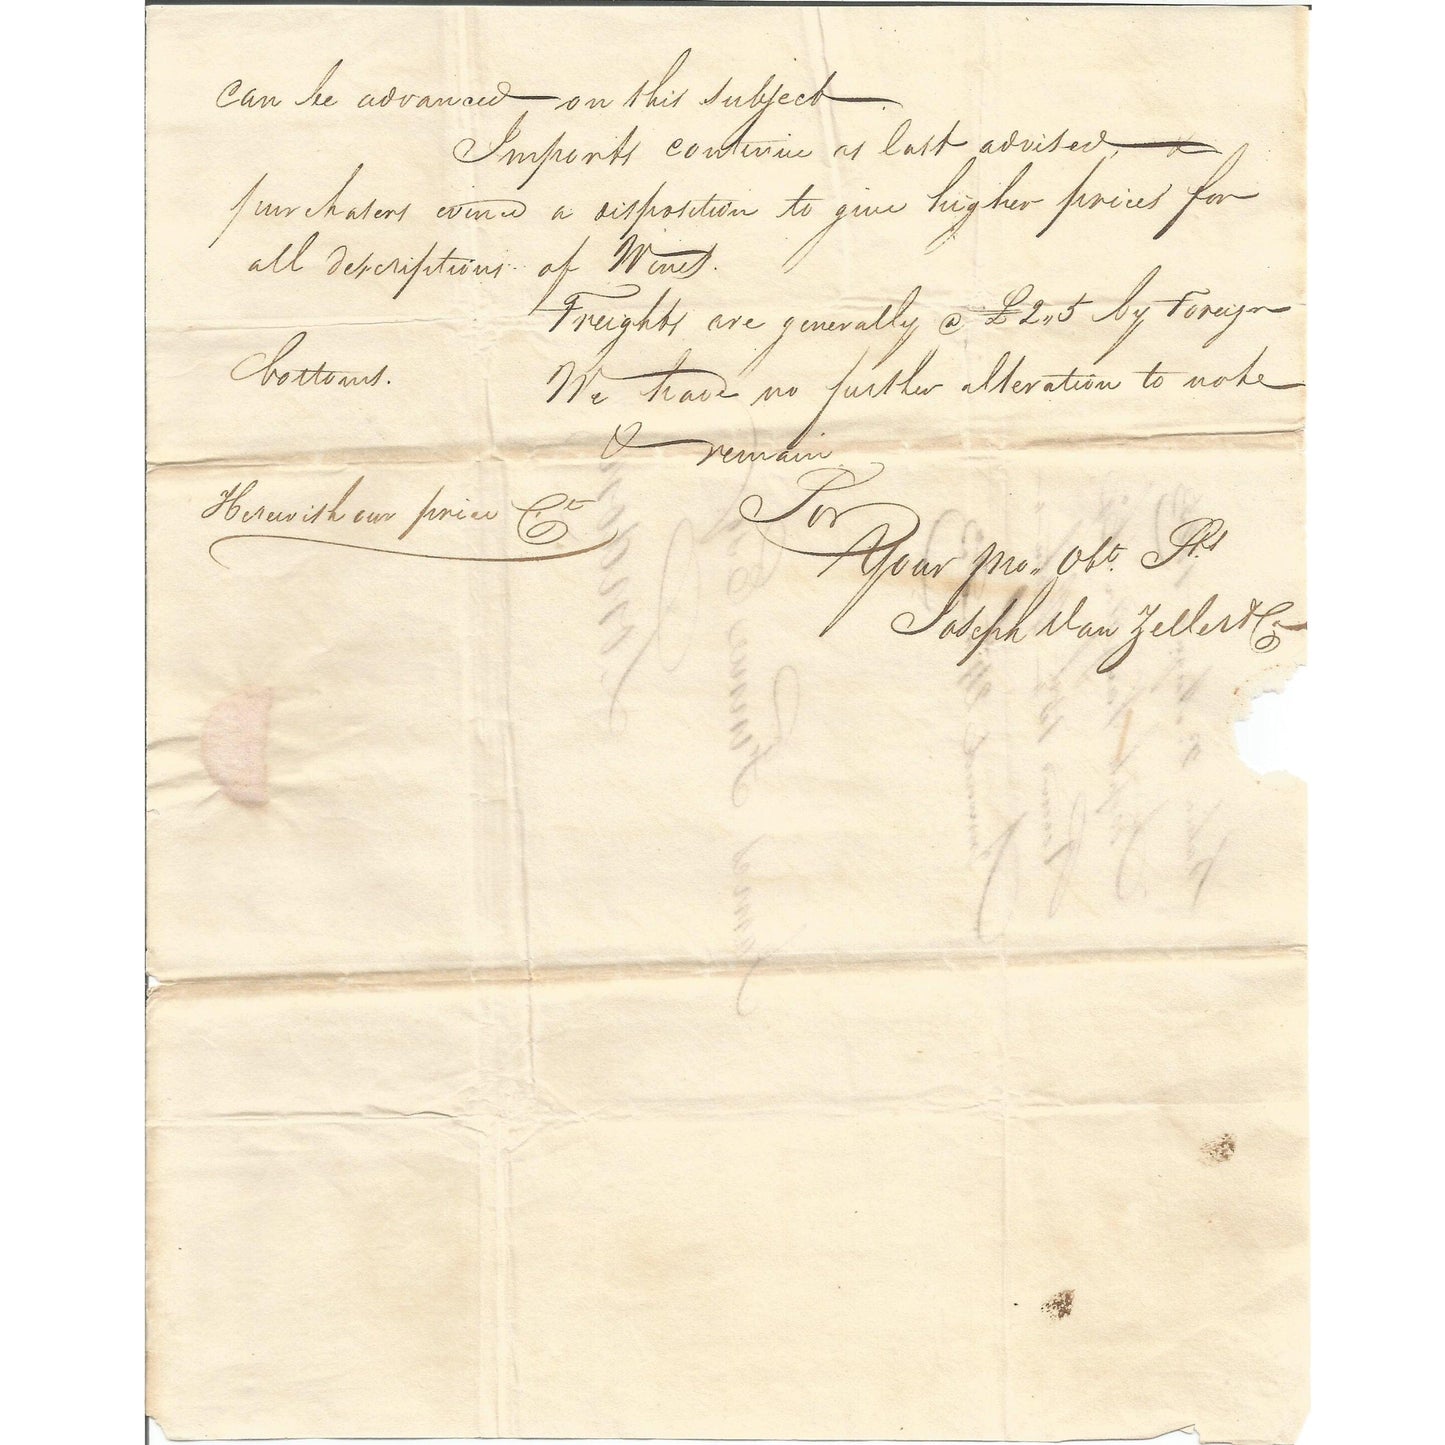 can be advanced on this subject.
Imports continue as last advised, &
purchasers evince a disposition to give higher prices for
all descriptions of Wines.
Freights are generally @ £2,,5 by Foreign
bottoms. We have no further alteration to note
& remain
Sor
Your Mo. Obt. Sts
Joseph Van Zeller & Co
Herewith our price Ct